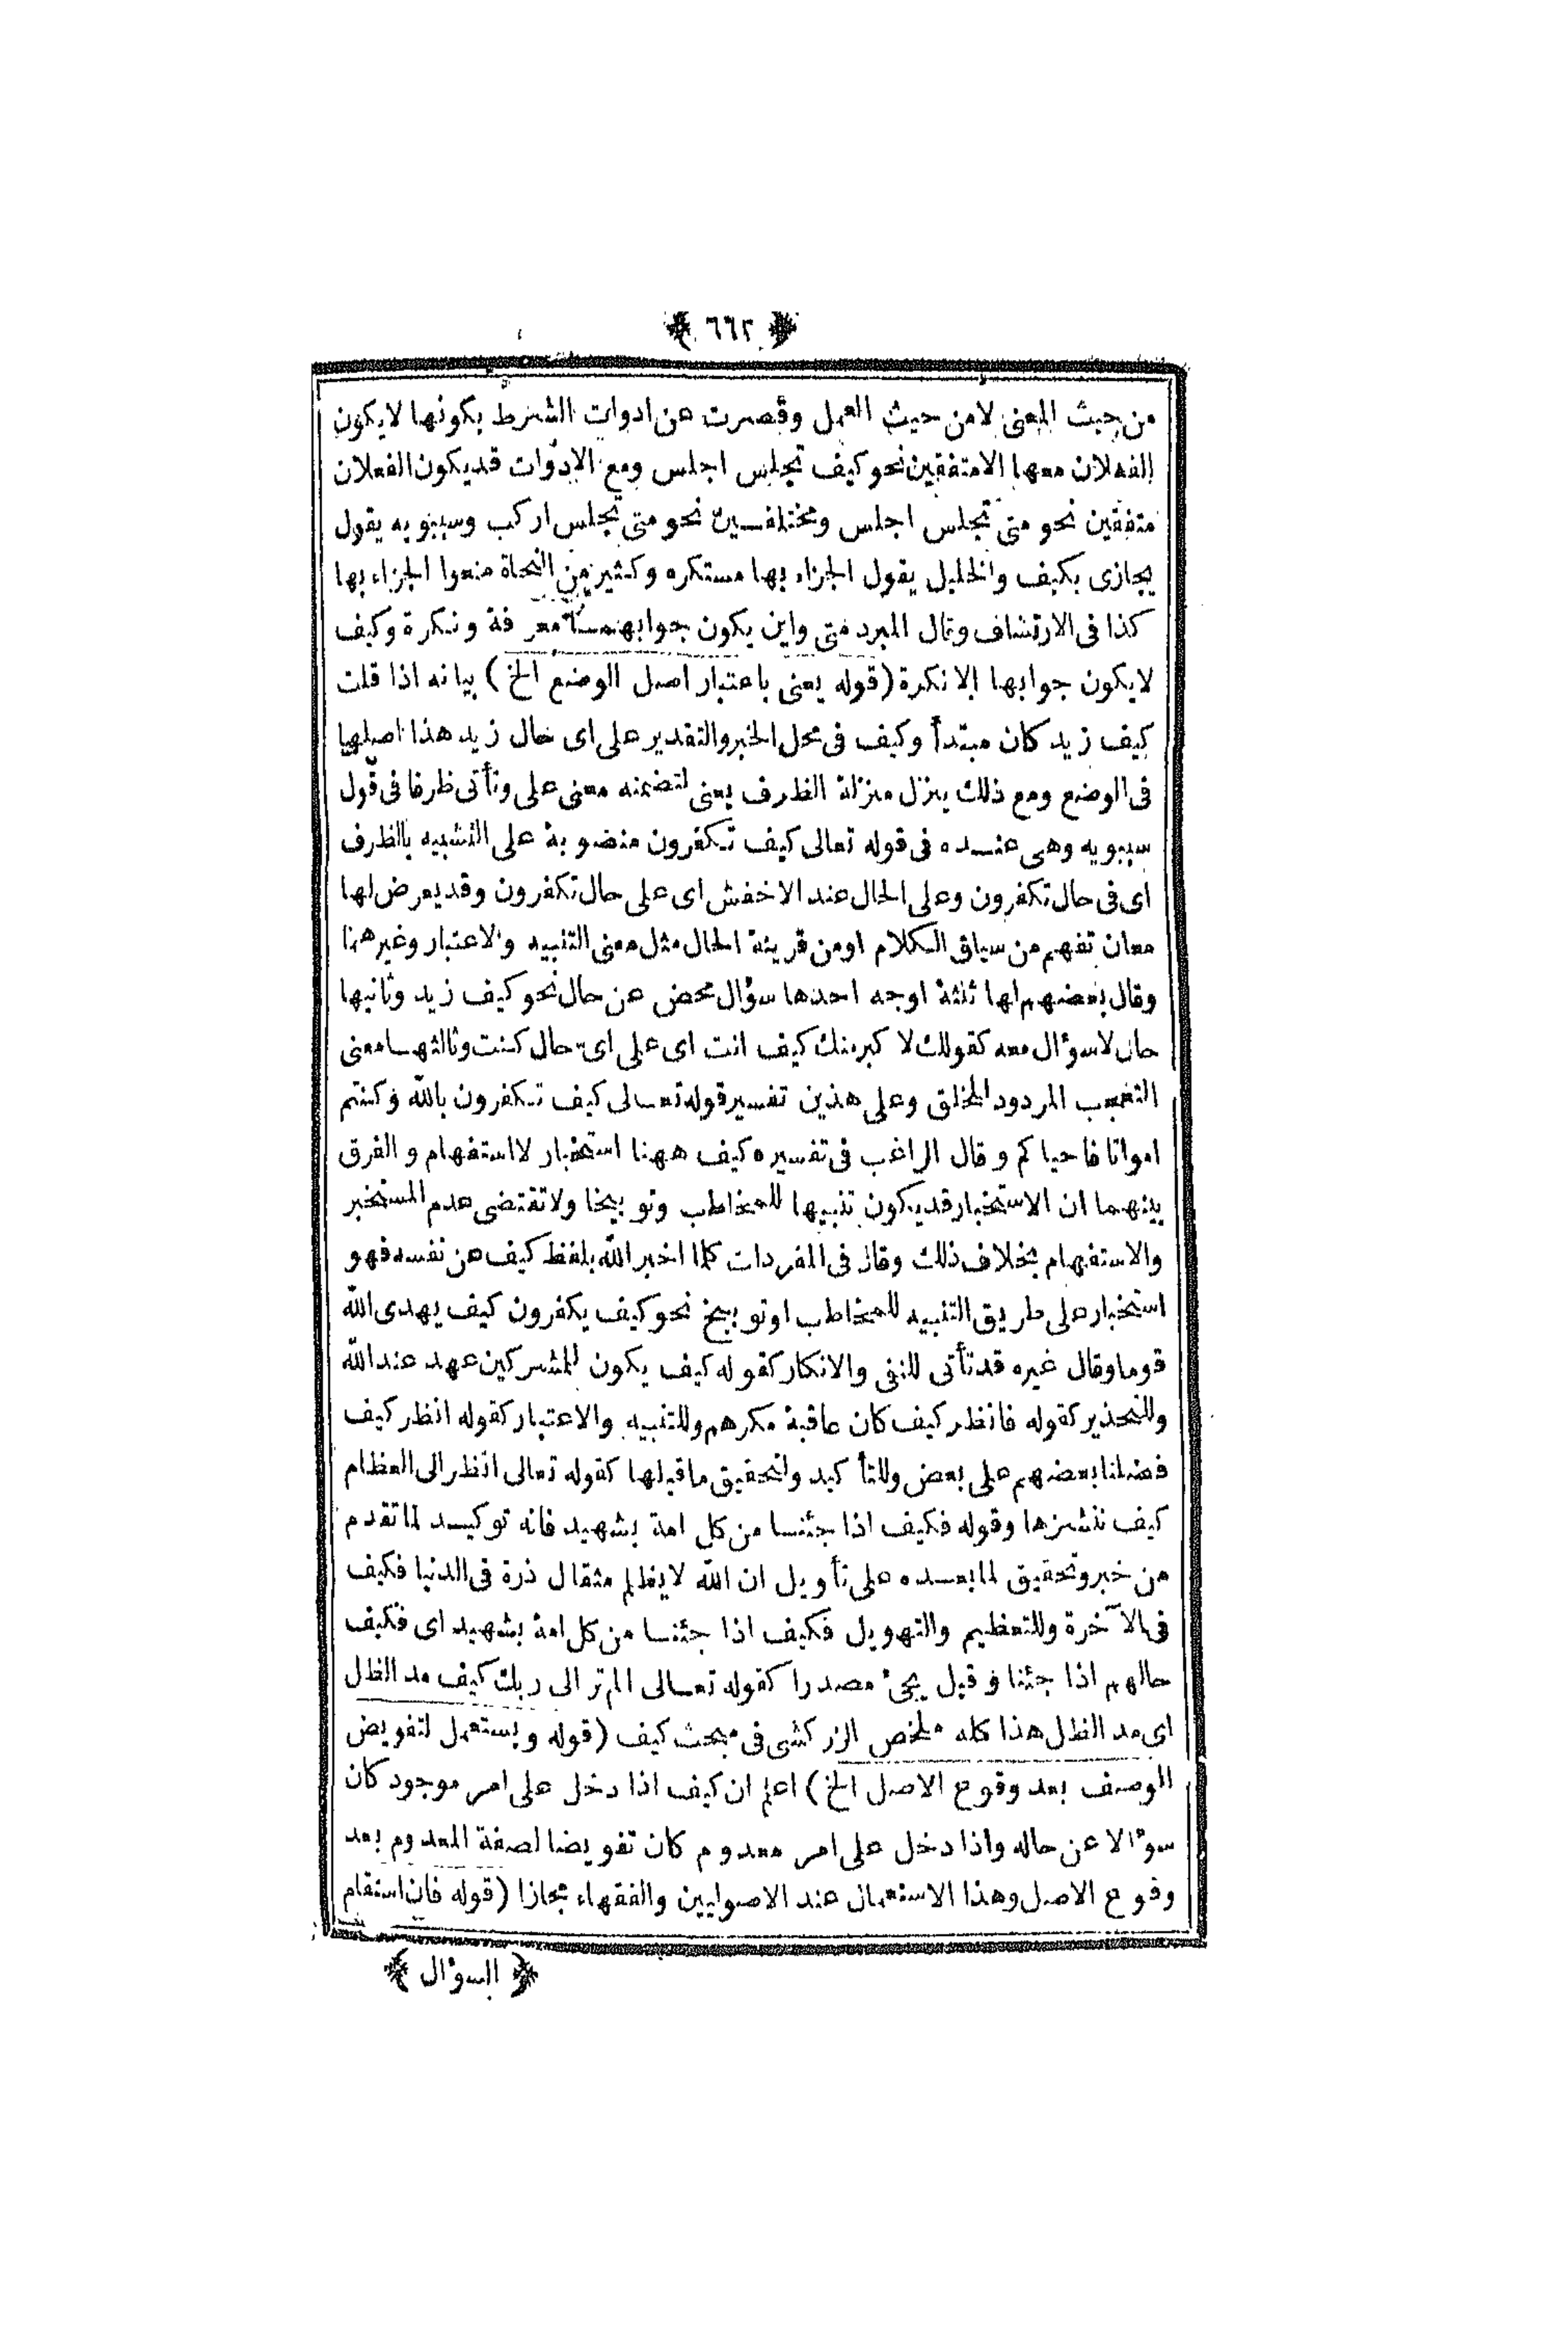 ﴿ ٦٦٢ ﴾
من حيث المعنى لامن حيث العمل وقصرت عن ادوات الشرط بكونها لايكون
الفعلان معها الامتفقين نحو كيف تجلس اجلس ومع الادوات قد يكون الفعلان
متفقين نحو متى تجلس اجلس ومختلفسين نحو متى تجلس اركب وسيبويه يقول
يجازى بكيف والخليل يقول الجزاء بها مستكره وكثير من النحاة منعوا الجزاء بها
كذا فى الارتشاف وقال المبرد متى واين يكون جوابهمسا معرفة ونكرة وكيف
لايكون جوابها الا نكرة (قوله يعنى باعتبار اصل الوضع الخ) بيانه اذا قلت
كيف زيد كان مبتدأ وكيف فى محل الخبر والتقدير على اى حال زيد هذا اصلها
فى الوضع ومع ذلك ينزل منزلة الظرف يعنى لتضمنه معنى على وتأتى ظرفا فى قول
سيبويه وهى عنسده فى قوله تعالى كيف تكفرون منصوبة على التشبيه بالظرف
اى فى حال تكفرون وعلى الحال عند الاخفش اى على حال تكفرون وقد يعرض لها
معان تفهم من سياق الكلام اومن قرينة الحال مثل معنى التنبيه والاعتبار وغيرهما
وقال بعضهم لها ثلثة اوجه احدها سؤال محض عن حال نحو كيف زيد وثانيها
حال لاسؤال معه كقولك لا كرمنك كيف انت اى على اى حال كنت وثالثهسا معنى
التعجب المردود للخلق وعلى هذين تفسير قوله تعسالى كيف تكفرون بالله وكنتم
امواتا فاحياكم وقال الراغب فى تفسيره كيف ههنا استخبار لااستفهام والفرق
بينهما ان الاستخبار قد يكون تنبيها للمخاطب وتوبيخا ولاتقتضى عدم المستخبر
والاستفهام بخلاف ذلك وقال فى المفردات كلما اخبر الله بلفظ كيف عن نفسه فهو
استخبار على طريق التنبيه للمخاطب اوتوبيخ نحو كيف يكفرون كيف يهدى الله
قوما وقال غيره قد تأتى للنفى والانكار كقوله كيف يكون للمشركين عهد عند الله
وللتحذير كقوله فانظر كيف كان عاقبة مكرهم وللتنبيه والاعتبار كقوله انظر كيف
فضلنا بعضهم على بعض وللتأكيد ولتحقيق ماقبلها كقوله تعالى انظر الى العظام
كيف ننشزها وقوله فكيف اذا جئنسا من كل امة بشهيد فانه توكيسد لما تقدم
من خبر وتحقيق لما بعسده على تأويل ان الله لايظلم مثقال ذرة فى الدنيا فكيف
فى الآخرة وللتعظيم والتهويل فكيف اذا جئنسا من كل امة بشهيد اى فكيف
حالهم اذا جئنا وقيل يجئ مصدرا كقوله تعسالى الم تر الى ربك كيف مد الظل
اى مد الظل هذا كله ملخص الزركشى فى مبحث كيف (قوله ويستعمل لتفويض
الوصف بعد وقوع الاصل الخ) اعلم ان كيف اذا دخل على امر موجود كان
سؤالا عن حاله واذا دخل على امر معدوم كان تفويضا لصفة المعدوم بعد
وقوع الاصل وهذا الاستعمال عند الاصوليين والفقهاء مجازا (قوله فان استقام
﴿ السؤال ﴾